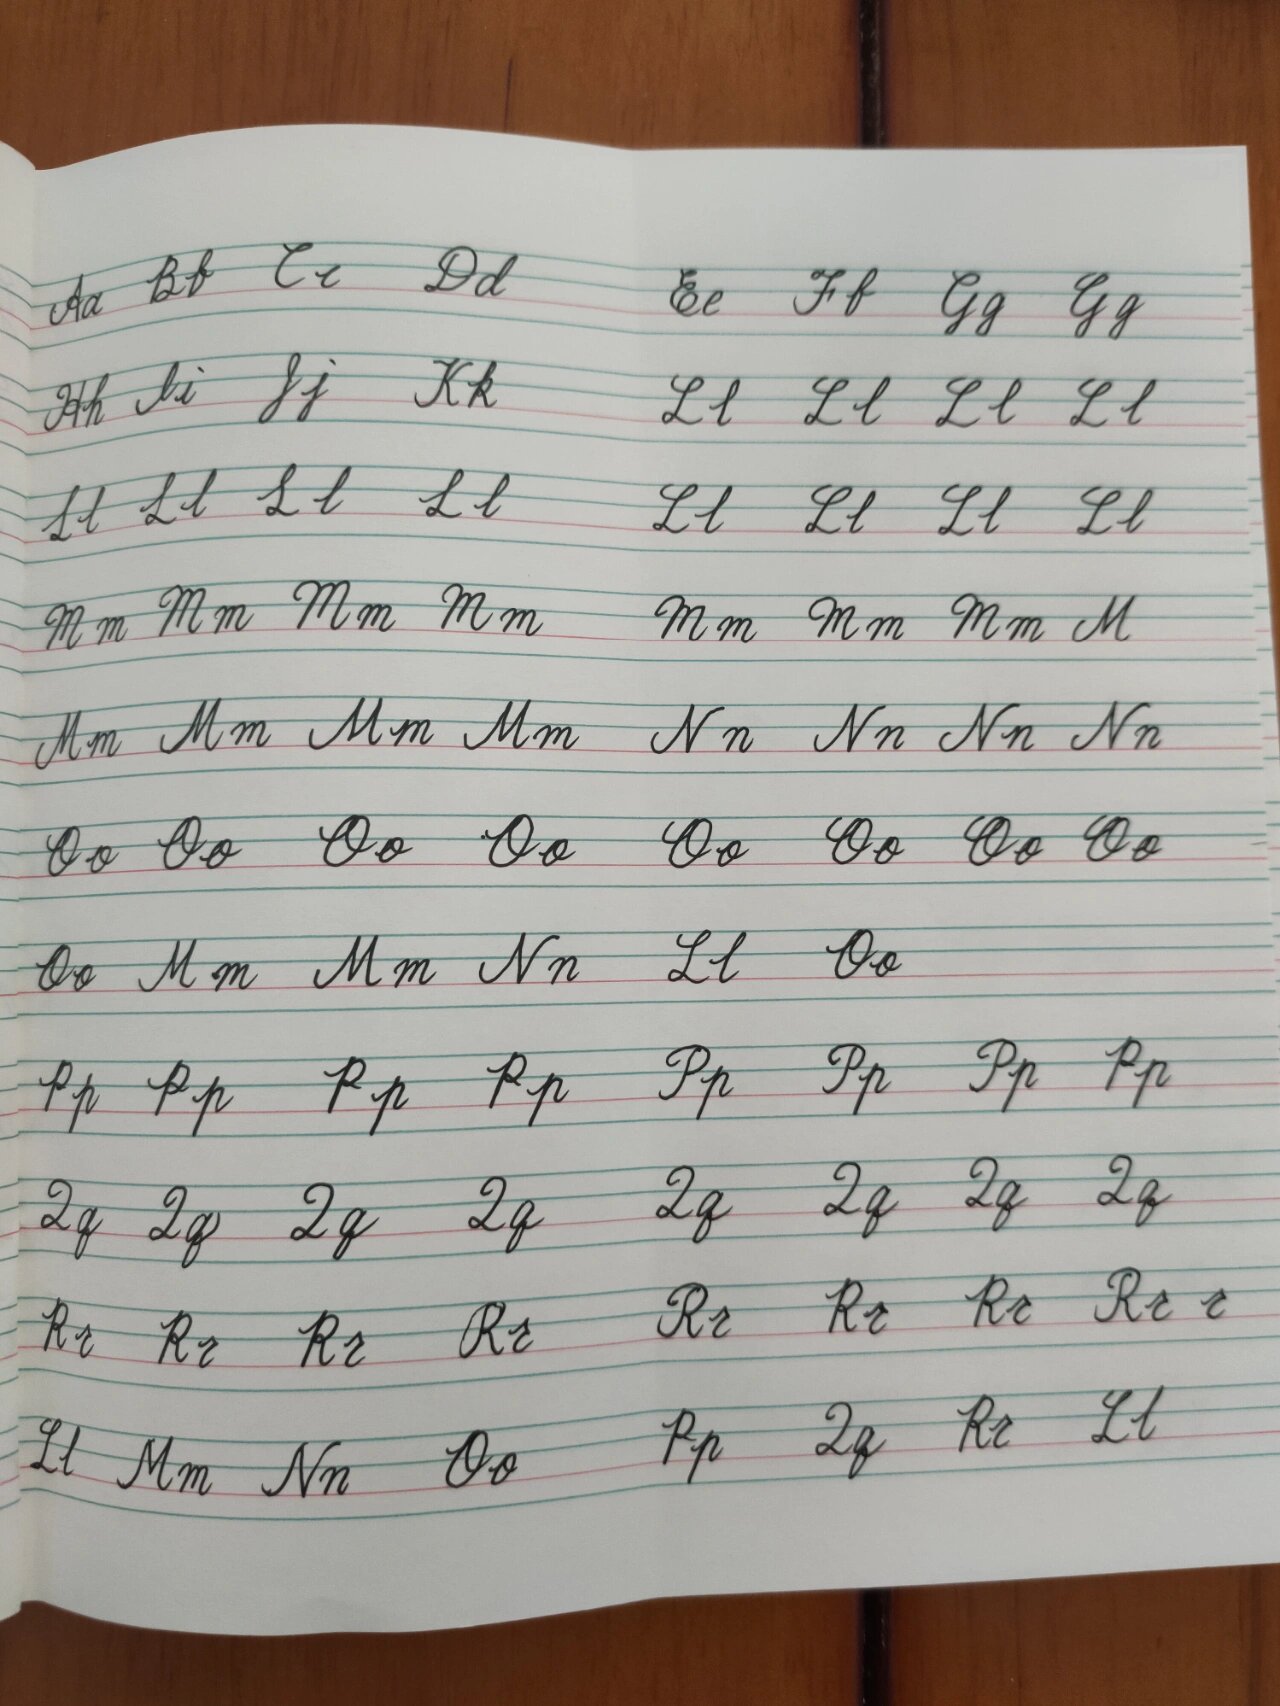 Aa Bb Cc Dd Ee Ff Gg Gg
Hh Ii Jj Kk Ll Ll Ll Ll
Ll Ll Ll Ll Ll Ll Ll Ll
Mm Mm Mm Mm Mm Mm Mm M
Mm Mm Mm Mm Nn Nn Nn Nn
Oo Oo Oo Oo Oo Oo Oo Oo
Oo Mm Mm Nn Ll Oo
Pp Pp Pp Pp Pp Pp Pp Pp
Qq Qq Qq Qq Qq Qq Qq Qq
Rr Rr Rr Rr Rr Rr Rr Rr r
Ll Mm Nn Oo Pp Qq Rr Ll